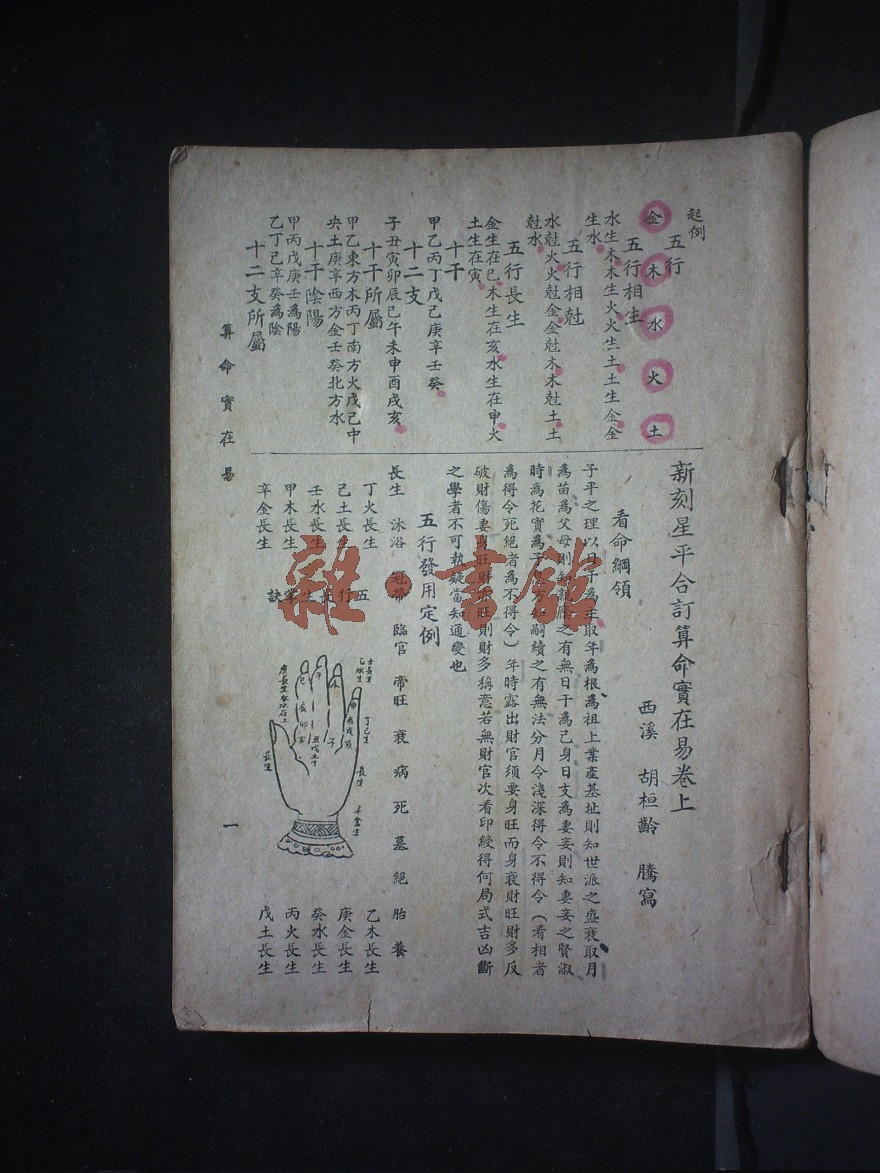 新刻星平合訂算命實在易卷上
西溪 胡桓齡 騰寫
起例
五行
金 木 水 火 土
五行相生
水生木木生火火生土土生金金
生水
五行相尅
水尅火火尅金金尅木木尅土土
尅水
五行長生
金生在巳木生在亥水生在申火
土生在寅
十干
甲乙丙丁戊己庚辛壬癸
十二支
子丑寅卯辰巳午未申酉戌亥
十干所屬
甲乙東方木丙丁南方火戊己中
央土庚辛西方金壬癸北方水
十干陰陽
甲丙戊庚壬為陽
乙丁己辛癸為陰
十二支所屬
看命綱領
子平之理以日干為主取年為根為祖上業產基址則知世派之盛衰取月
為苗為父母則知親廕之有無日干為己身日支為妻妾則知妻妾之賢淑
時為花實為子息方知嗣續之有無法分月令淺深得令不得令(看相者
為得令死絕者為不得令)年時露出財官須要身旺而身衰財旺財多反
破財傷妻身旺財亦旺則財多稱意若無財官次看印綬得何局式吉凶斷
之學者不可執疑當知通變也
五行發用定例
長生 沐浴 冠帶 臨官 帝旺 衰 病 死 墓 絕 胎 養
丁火長生 乙木長生
己土長生 庚金長生
壬水長生 癸水長生
甲木長生 丙火長生
辛金長生 戊土長生
五行長生掌訣
長生
長生
算命實在易
一
雜·書館